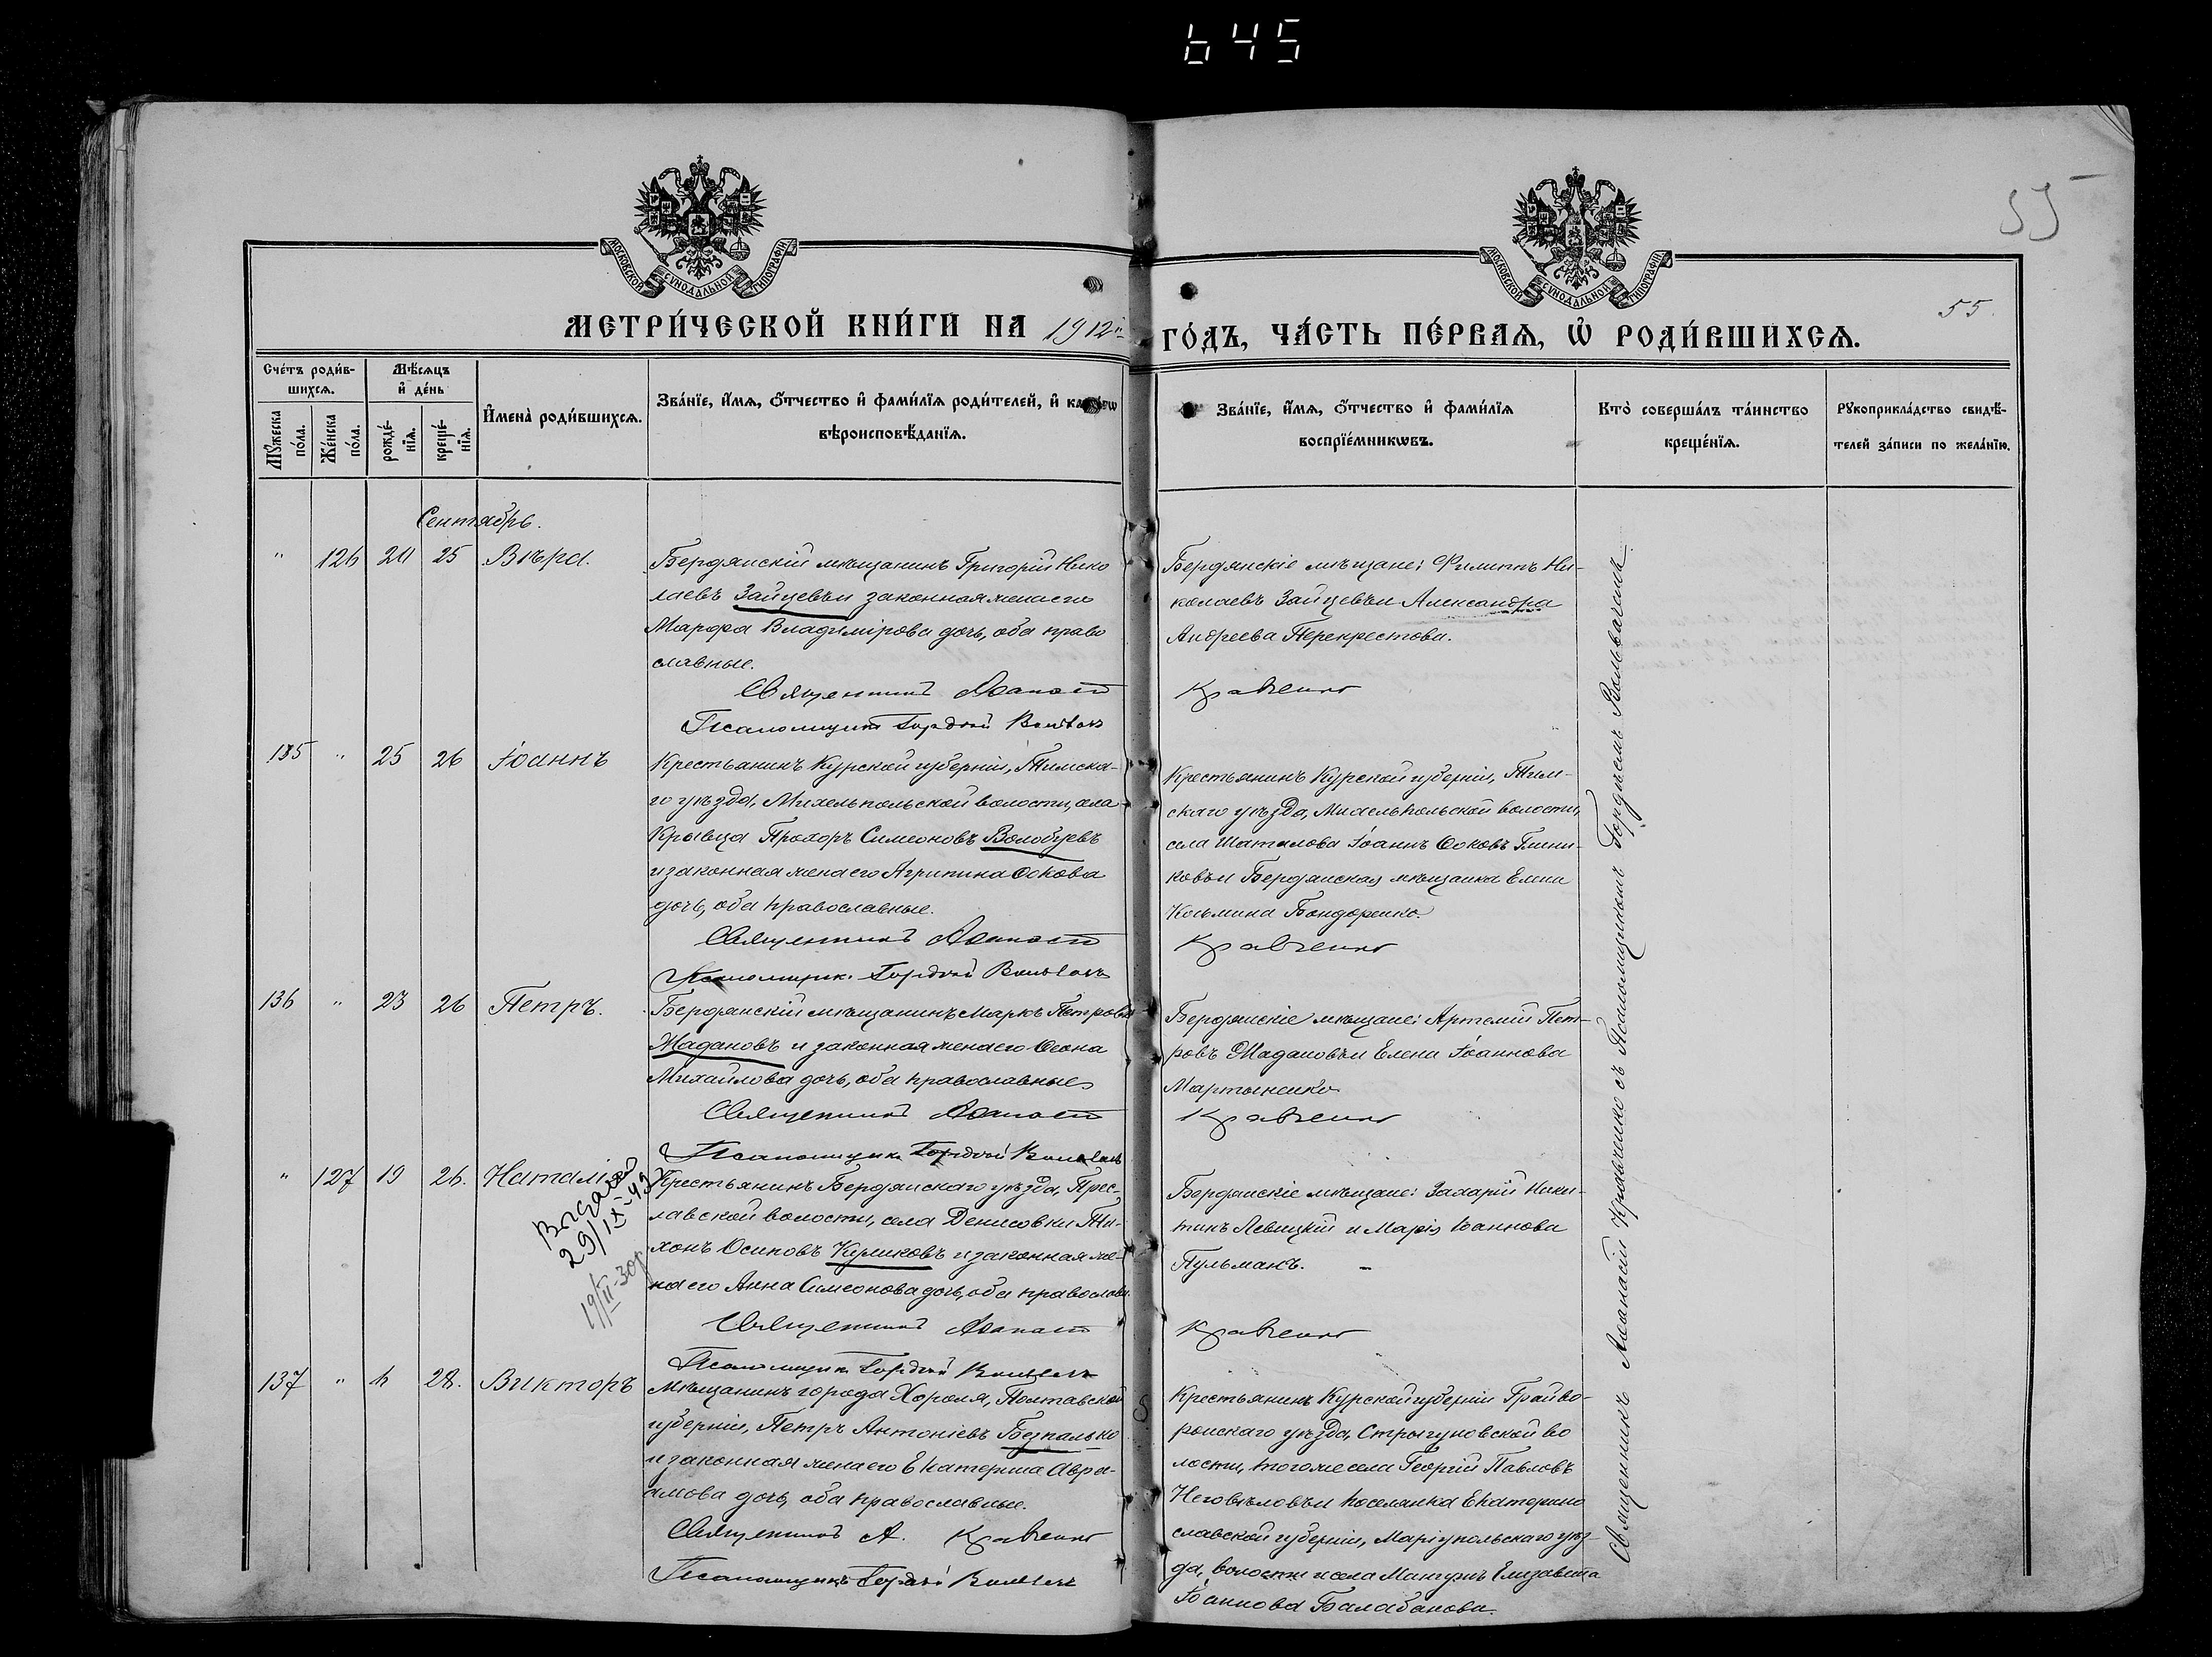 645
55
МОСКОВСКОЙ СУНОДАЛЬНОЙ ТИПОГРАФІИ
МОСКОВСКОЙ СУНОДАЛЬНОЙ ТИПОГРАФІИ
55.
МЕТРИ́ЧЕСКОЙ КНИ́ГИ НА 1912й ГО́ДЪ, ЧА́СТЬ ПЕ́РВАЯ, Ѡ҆ РОДИ́ВШИХСЯ.
Сче́тъ роди́в-
шихся.
Мꙋ́жеска по́ла.
Же́нска по́ла.
Мѣ́сяцъ
и҆ де́нь
рожде́-
нїя.
креще́-
нїя.
И҆мена̀ роди́вшихся.
Зва́нїе, и҆́мя, ѻ҆́тчество и҆ фами́лїя роди́телей, и҆
вѣроисповѣ́данїя.
Зва́нїе, и҆́мя, ѻ҆́тчество и҆ фами́лїя
воспрїе́мникѡвъ.
Кто̀ соверша́лъ та́инство
креще́нїя.
Рꙋкоприкла́дство свидѣ́-
телей за́писи по жела́нїю.
Сентябрь.
" 126 24 25 Вѣра.
Бердянскій мѣщанинъ Григорій Нико
лаевъ Зайцевъ и законная жена его
Марфа Владимірова дочь, оба право
славные.
Священникъ Аѳанасій Кравченко
Псаломщикъ Гордѣй
Бердянскіе мѣщане: Филиппъ Ни-
колаевъ Зайцевъ и Александра
Андреева Перекрестова.
135 " 25 26 Іоаннъ
Крестьянинъ Курской губерніи, Тимска-
го уѣзда, Михельпольской волости, села
Кривца Прохоръ Симеоновъ Волобуевъ
и законная жена его Агрипина Ѳокова
дочь, оба православные.
Священникъ Аѳанасій Кравченко
Псаломщик. Гордѣй
Крестьянинъ Курской губерніи, Тим-
скаго уѣзда, Михельпольской волости,
села Шаталова Іоаннъ Ѳоковъ
ковъ и Бердянская мѣщанка Елена
Косьмина Бондаренко.
136 " 23 26 Петръ.
Бердянскій мѣщанинъ Маркъ Петровъ
Жадановъ и законная жена его
Михайлова дочь, оба православные
Священникъ Аѳанасій Кравченко
Псаломщикъ Гордѣй
Бердянскіе мѣщане: Артемій Пет-
ровъ Жадановъ и Елена Іоаннова
Мартыненко
" 127 19 26. Наталія
29/IX-49
19/II-30г.
Крестьянинъ Бердянскаго уѣзда, Прес-
лавской волости, села Денисовки Ти-
хонъ Осиповъ Куликовъ и законная же-
на его Анна Симеонова дочь, оба православн.
Священникъ Аѳанасій Кравченко
Псаломщикъ Гордѣй
Бердянскіе мѣщане: Захарій Ники-
тинъ Левицкій и Марія Іоаннова
Пульманъ.
137 " 4 28. Викторъ
Мѣщанинъ города Хороля, Полтавской
губерніи, Петръ Антоніевъ Безпалько
и законная жена его Екатерина Авра-
амова дочь, оба православные.
Священникъ А. Кравченко
Псаломщикъ Гордѣй
Крестьянинъ Курской губерніи Грайво-
ронскаго уѣзда, Стригуновской во
лости, того же села Георгій Павловъ
и поселянка Екатерино
славской губерніи, Маріупольскаго уѣз-
да, волости и села Мангушъ Елизавета
Іоаннова Балабанова.
Священникъ Аѳанасій Кравченко съ Псаломщикомъ Гордѣемъ